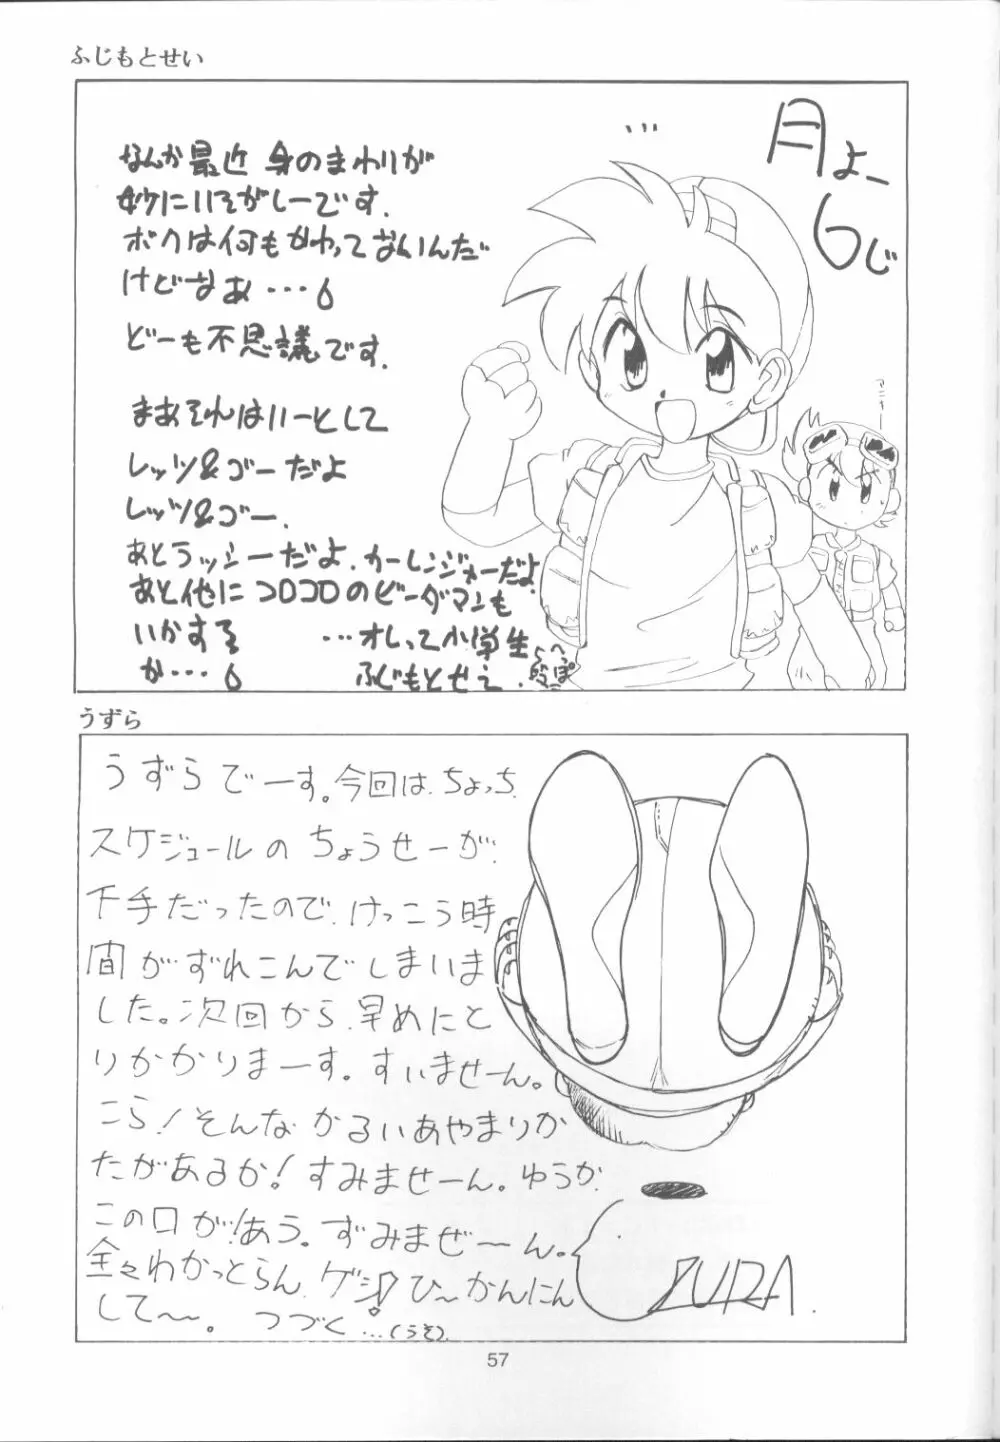 ふじもとせい
月よー
6じ
なんか最近 身のまわりが
妙にいそがしーです.
ボクは何もかわってないんだ
けどなぁ・・・
どーも不思議です.
まあそれはいーとして
レッツ&ゴーだよ
レッツ&ゴー.
あとラッシーだよ.カーレンジャーだよ.
あと他にコロコロのビーダマンも
いかする
か・・・
…オレって小学生
ふじもとせえ.
うずら
うずらでーす。今回は、ちょっち
スケジュールのちょうせーが、
下手だったので、けっこう時
間がずれこんでしまいま
した。次回から、早めにと
りかかりまーす。すいませーん。
こら!そんなかるいあやまりか
たがあるか!すみませーん。ゆうか、
この口が!あう。ずみまぜ〜ん。
全々わかっとらん、ゲシ!ひ〜かんにん
して〜。つづく…(うそ).
ZURA.
57